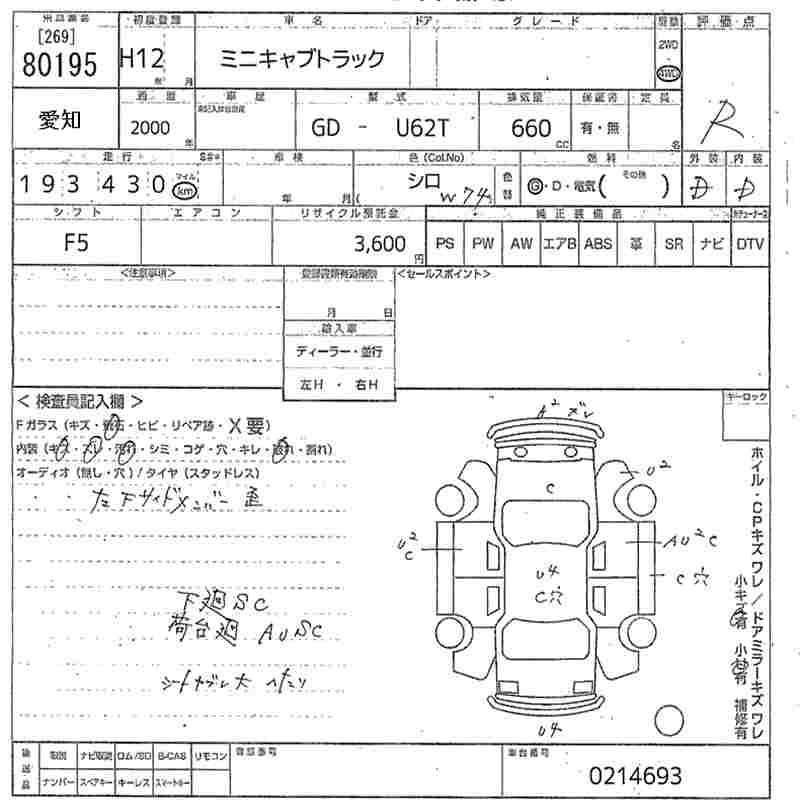 出品番号 初度登録 車名 ドア グレード 駆動 評価点
[269]
80195 H12 年 月 ミニキャブトラック 2WD 4WD R
愛知 2000 年 車歴 型式 排気量 保証書 定員
GD - U62T 660 CC 有・無 名
走行 車検 色(Col.No) 色替 燃料 外装 内装
193 430 マイル km 年 月 シロ W74 G・D・電気( その他 ) D D
シフト エアコン リサイクル預託金 純正装備品
F5 3,600 円 PS PW AW エアB ABS 革 SR ナビ DTV
<注意事項> 登録書類有効期限 <セールスポイント>
月 日
輸入車
ディーラー・並行
左H ・ 右H
< 検査員記入欄 > キーロック
Fガラス (キズ・飛石・ヒビ・リペア跡・X要)
内装 (キズ・スレ・汚れ・シミ・コゲ・穴・キレ・破れ・割れ)
オーディオ (無し・穴) / タイヤ (スタッドレス)
左下サイドメンバー歪
下廻SC
荷台廻 AUSC
シートヤブレ大 ヘタリ
A2 ズレ
U2
C
U2
C
AU2C
C穴
U4
C穴
U4
ホイル・CPキズワレ/ドアミラーキズワレ
小キズ有 小凹有 補修有
後日品 取説 ナビ取説 ロム/SD B-CAS リモコン 車台番号
ナンバー スペアキー キーレス スマートキー 0214693